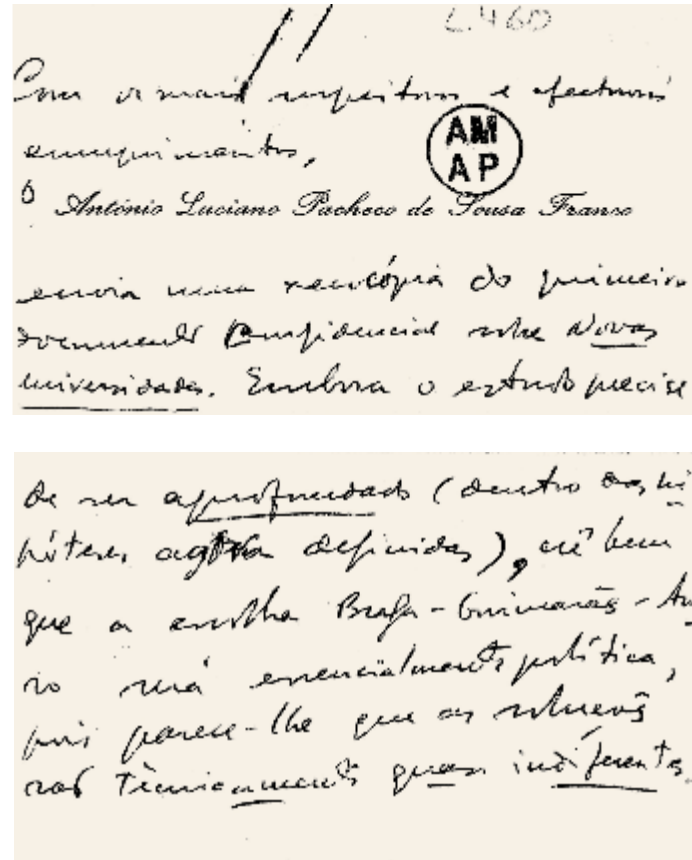 L.460
Com os mais respeitosos e afectuosos
cumprimentos,
AM
AP
o António Luciano Pacheco de Sousa Franco
envia uma xerocópia do primeiro
documento confidencial sobre Novas
Universidades. Embora o estudo precise
de ser aprofundado (dentro das hi
póteses agora definidas), crê bem
que a escolha Braga-Guimarães-Av
ro será essencialmente política,
pois parece-lhe que as soluções
são tècnicamente quase indiferentes.